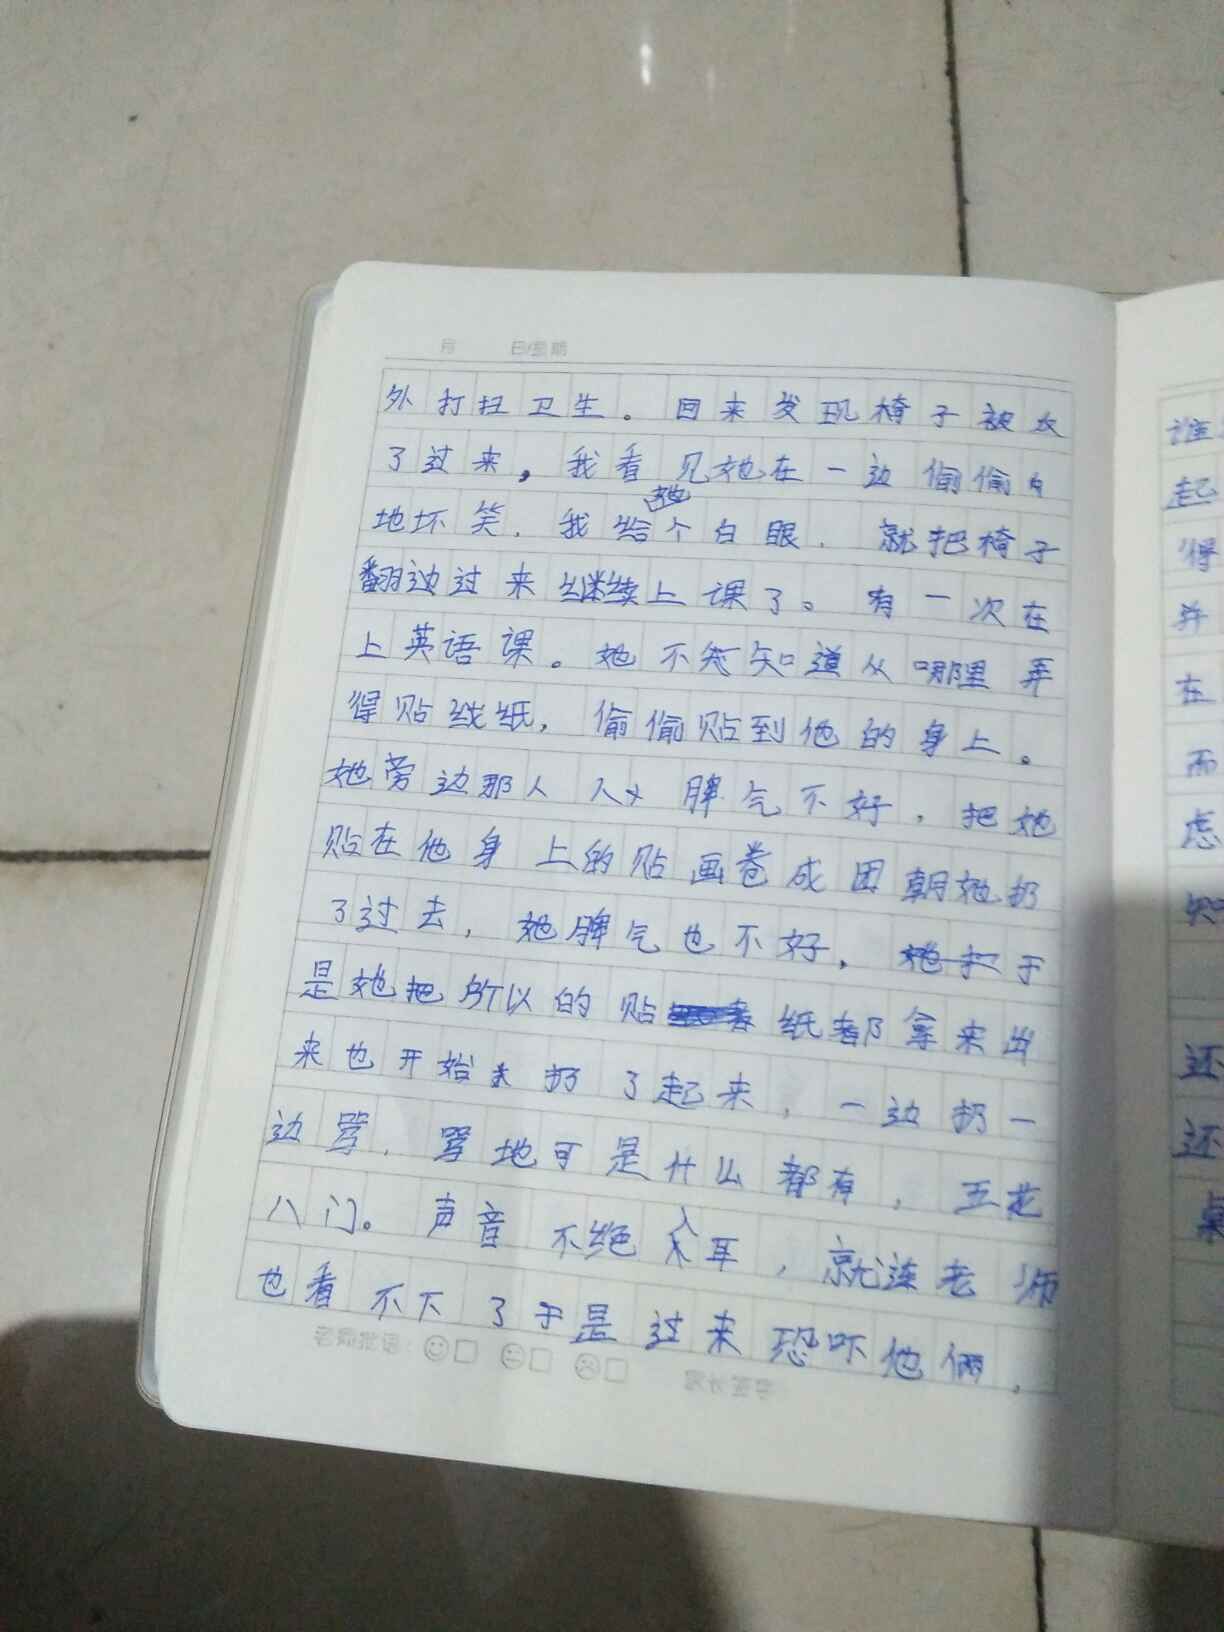 月 日/星期
外打扫卫生。回来发现椅子被
了过来,我看见她在一边偷偷
地坏笑.我给她个白眼.就把椅子
翻边过来继续上课了。有一次在
上英语课。她不知道从哪里弄
得贴纸,偷偷贴到他的身上。
她旁边那人 脾气不好,把她
贴在他身上的贴画卷成团朝她扔
了过去,她脾气也不好,她扔于
是她把所以的贴 纸都拿来出
来也开始 扔了起来,一边扔一
边骂.骂地可是什么都有,五花
八门。声音不绝入耳,就连老师
也看不下了于是过来恐吓他俩,
老师批语: 家长签字
谁
起
得
并
在
而
虑
知
还
还
桌